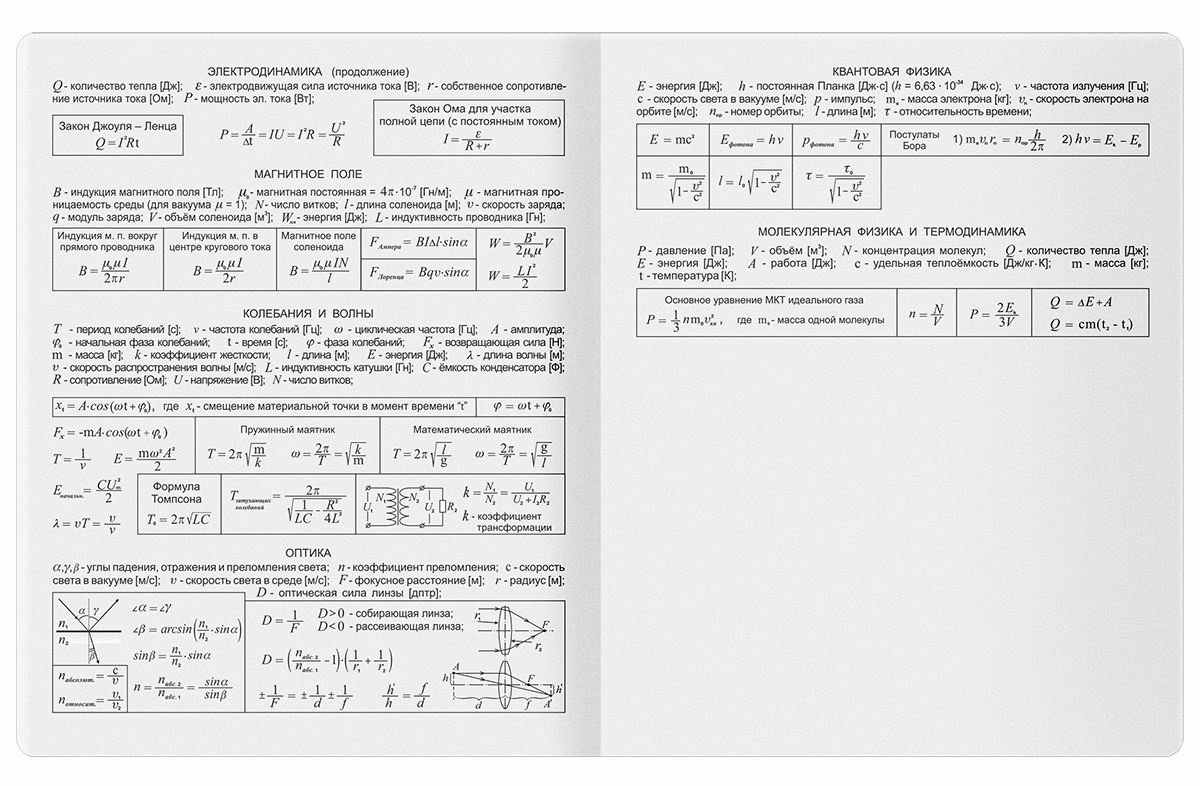 ЭЛЕКТРОДИНАМИКА (продолжение)
Q - количество тепла [Дж]; ε - электродвижущая сила источника тока [В]; r - собственное сопротивле-
ние источника тока [Ом]; P - мощность эл. тока [Вт];
Закон Джоуля – Ленца
Q = I²Rt
P = A/Δt = IU = I²R = U²/R
Закон Ома для участка
полной цепи (с постоянным током)
I = ε/(R + r)
МАГНИТНОЕ ПОЛЕ
B - индукция магнитного поля [Тл]; μ₀ - магнитная постоянная = 4π·10⁻⁷ [Гн/м]; μ - магнитная про-
ницаемость среды (для вакуума μ = 1); N - число витков; l - длина соленоида [м]; υ - скорость заряда;
q - модуль заряда; V - объём соленоида [м³]; Wм - энергия [Дж]; L - индуктивность проводника [Гн];
Индукция м. п. вокруг
прямого проводника
B = μ₀μI/2πr
Индукция м. п. в
центре кругового тока
B = μ₀μI/2r
Магнитное поле
соленоида
B = μ₀μIN/l
Fампера = BIΔl·sinα
Fлоренца = Bqυ·sinα
W = B²/2μ₀μ V
W = LI²/2
КОЛЕБАНИЯ И ВОЛНЫ
T - период колебаний [с]; ν - частота колебаний [Гц]; ω - циклическая частота [Гц]; A - амплитуда;
φ₀ - начальная фаза колебаний; t - время [с]; φ - фаза колебаний; Fₓ - возвращающая сила [Н];
m - масса [кг]; k - коэффициент жесткости; l - длина [м]; E - энергия [Дж]; λ - длина волны [м];
υ - скорость распространения волны [м/с]; L - индуктивность катушки [Гн]; C - ёмкость конденсатора [Ф];
R - сопротивление [Ом]; U - напряжение [В]; N - число витков;
xₜ = A·cos(ωt + φ₀), где xₜ - смещение материальной точки в момент времени "t"
φ = ωt + φ₀
Fₓ = -mA·cos(ωt + φ₀)
T = 1/ν E = mω²A²/2
Пружинный маятник
T = 2π√(m/k) ω = 2π/T = √(k/m)
Математический маятник
T = 2π√(l/g) ω = 2π/T = √(g/l)
Eначальн. = CUₘ²/2
λ = υT = υ/ν
Формула
Томпсона
T₀ = 2π√LC
Tзатухающих колебаний = 2π/√(1/LC - R²/4L²)
U₁ N₁ N₂ U₂ R₂
k = N₁/N₂ = U₁/(U₂ + I₂R₂)
k - коэффициент
трансформации
ОПТИКА
α,γ,β - углы падения, отражения и преломления света; n - коэффициент преломления; с - скорость
света в вакууме [м/с]; υ - скорость света в среде [м/с]; F - фокусное расстояние [м]; r - радиус [м];
D - оптическая сила линзы [дптр];
α γ n₁ n₂ β
∠α = ∠γ
∠β = arcsin(n₁/n₂·sinα)
sinβ = n₁/n₂·sinα
n = nабс.2/nабс.1 = sinα/sinβ
nабсолют. = c/υ
nотносит. = υ₁/υ₂
D = 1/F
D > 0 - собирающая линза;
D < 0 - рассеивающая линза;
D = (nабс.2/nабс.1 - 1)·(1/r₁ + 1/r₂)
±1/F = ±1/d ± 1/f h'/h = f/d
r₁ F r₂
A h F h' d f A'
КВАНТОВАЯ ФИЗИКА
E - энергия [Дж]; h - постоянная Планка [Дж·с] (h = 6,63 · 10⁻³⁴ Дж·с); ν - частота излучения [Гц];
с - скорость света в вакууме [м/с]; p - импульс; mₑ - масса электрона [кг]; υₙ - скорость электрона на
орбите [м/с]; nор - номер орбиты; l - длина [м]; τ - относительность времени;
E = mc²
Eфотона = hν
pфотона = hν/c
Постулаты
Бора
1) mₑυₙrₙ = nор h/2π 2) hν = Eₖ – Eₚ
m = m₀/√(1-υ²/c²)
l = l₀√(1-υ²/c²)
τ = τ₀/√(1-υ²/c²)
МОЛЕКУЛЯРНАЯ ФИЗИКА И ТЕРМОДИНАМИКА
P - давление [Па]; V - объём [м³]; N - концентрация молекул; Q - количество тепла [Дж];
E - энергия [Дж]; A - работа [Дж]; с - удельная теплоёмкость [Дж/кг·K]; m - масса [кг];
t - температура [K];
Основное уравнение МКТ идеального газа
P = 1/3 nm₀υ²кв , где m₀ - масса одной молекулы
n = N/V
P = 2Eₖ/3V
Q = ΔE + A
Q = cm(t₂ - t₁)